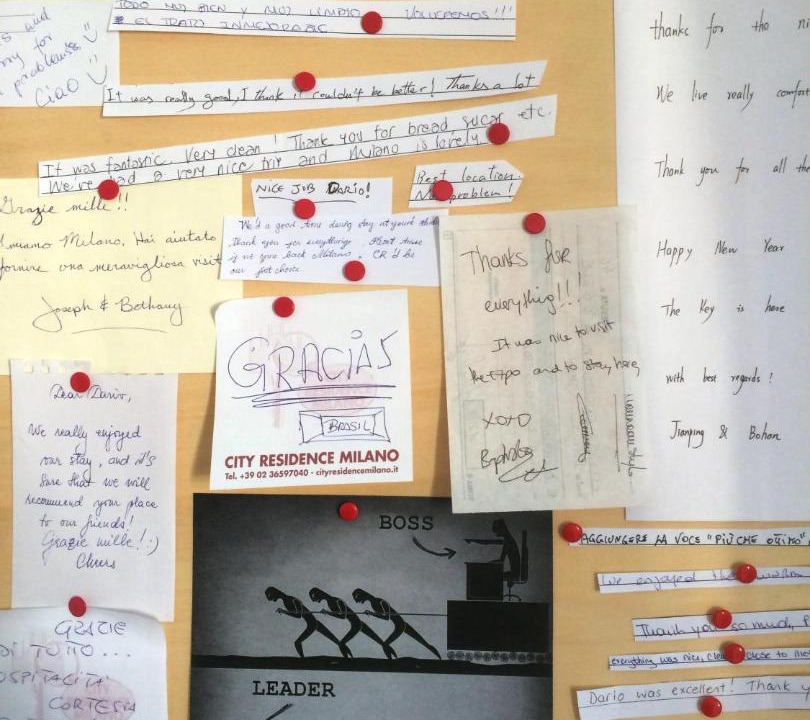 s and
ry for
problems
Ciao
TODO MUY BIEN Y MUY LIMPIO VOLVEREMOS!!!
EL TRATO INMEJORABLE
It was really good, I think it couldn't be better! Thanks a lot
It was fantastic. Very clean! Thank you for bread, sugar etc.
We've had a very nice trip and Milano is lovely
Best location.
No problem!
NICE JOB DARIO!
We'd a good time during stay at your
Thank you for everything.
if we come back Milano. CR'd be
our first choice
Grazie mille!!
Amiamo Milano. Hai aiutato
fornire una meravigliosa visit
Joseph & Bethany
GRACIAS
BRASIL
CITY RESIDENCE MILANO
Tel. +39 02 36597040 - cityresidencemilano.it
Thanks for
everything!!!
It was nice to visit
the expo and to stay here
XOXO
thanks for the ni
We live really comfort
Thank you for all the
Happy New Year
The key is here
with best regards!
Jianping & Bohan
Dear Dario,
We really enjoyed
our stay, and it's
sure that we will
recommend your place
to our friends!
Grazie mille! :)
Cheers
GRAZIE
DI TUTTO...
OSPITALITA'
CORTESIA
BOSS
LEADER
AGGIUNGERE LA VOCE "PIÙ CHE OTTIMO"
We enjoyed the
Thank you so much,
everything was nice, clean close to
Dario was excellent! Thank y